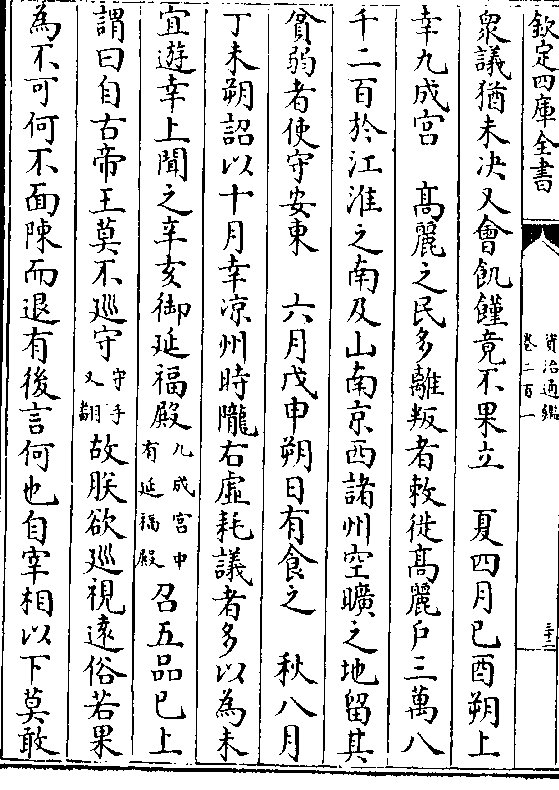 欽定四庫全書
資治通鑑
卷二百一
三十三
衆議猶未决又會飢饉竟不果立　夏四月已酉朔上
幸九成宮　髙麗之民多離叛者敕徙髙麗戶三萬八
千二百於江淮之南及山南京西諸州空曠之地留其
貧弱者使守安東　六月戊申朔日有食之　秋八月
丁未朔詔以十月幸凉州時隴右虛耗議者多以為未
宜遊幸上聞之辛亥御延福殿九成宮中有延福殿召五品已上
謂曰自古帝王莫不廵守守手又翻故朕欲廵視遠俗若果
為不可何不面陳而退有後言何也自宰相以下莫敢